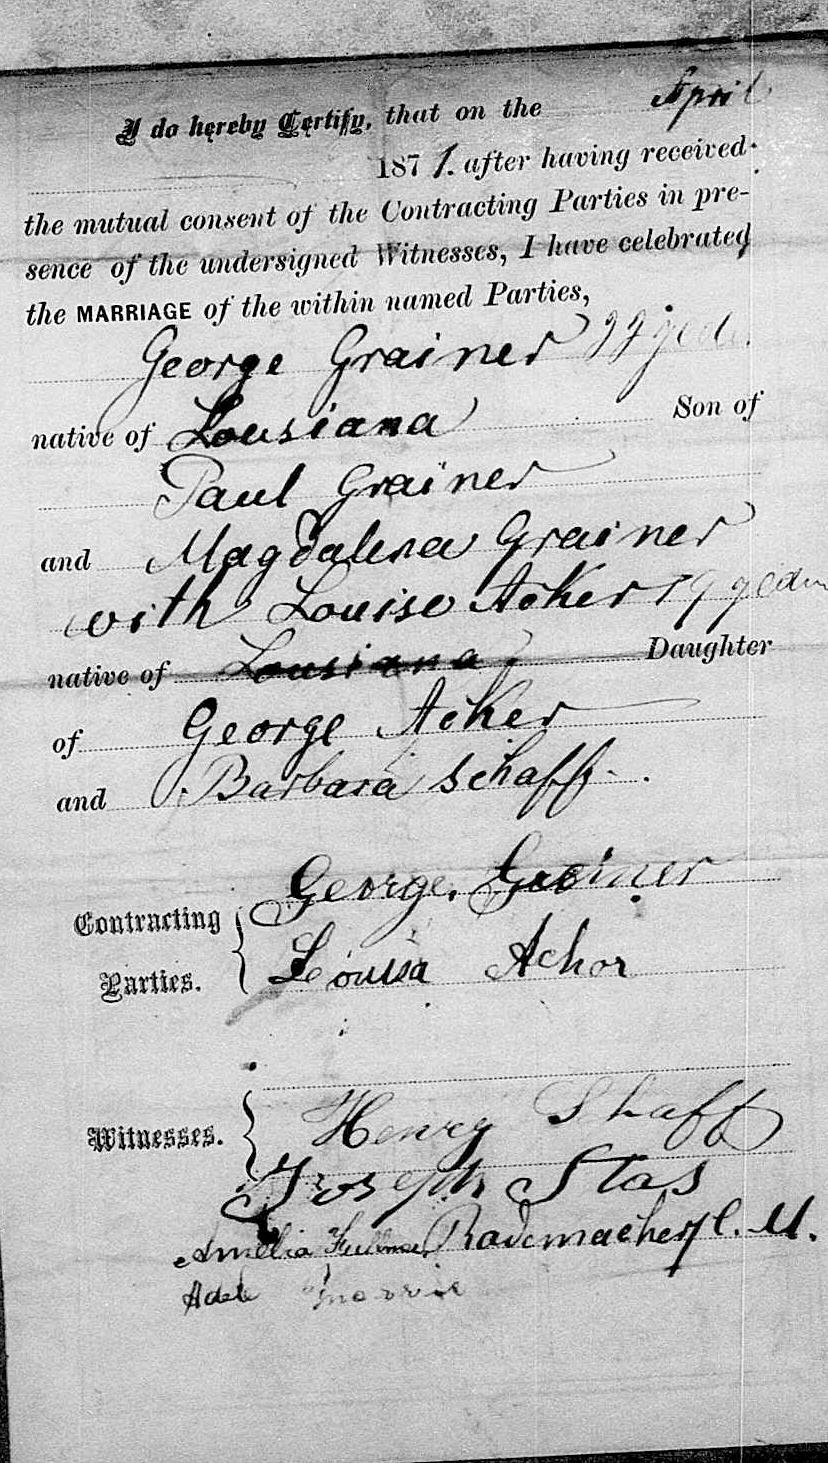 I do hereby Certify, that on the April
1871. after having received
the mutual consent of the Contracting Parties in pre-
sence of the undersigned Witnesses, I have celebrated
the MARRIAGE of the within named Parties,
George Grainer
native of Lousiana Son of
Paul Grainer
and Magdalena Grainer
with Louise Acker 19
native of Lousiana Daughter
of George Acker
and Barbara Schaff.
Contracting Parties. { George Grainer
Louisa Achor
Witnesses. { Henry Shaff
Joseph Stas
Amelia Rademacher C. M.
Adele